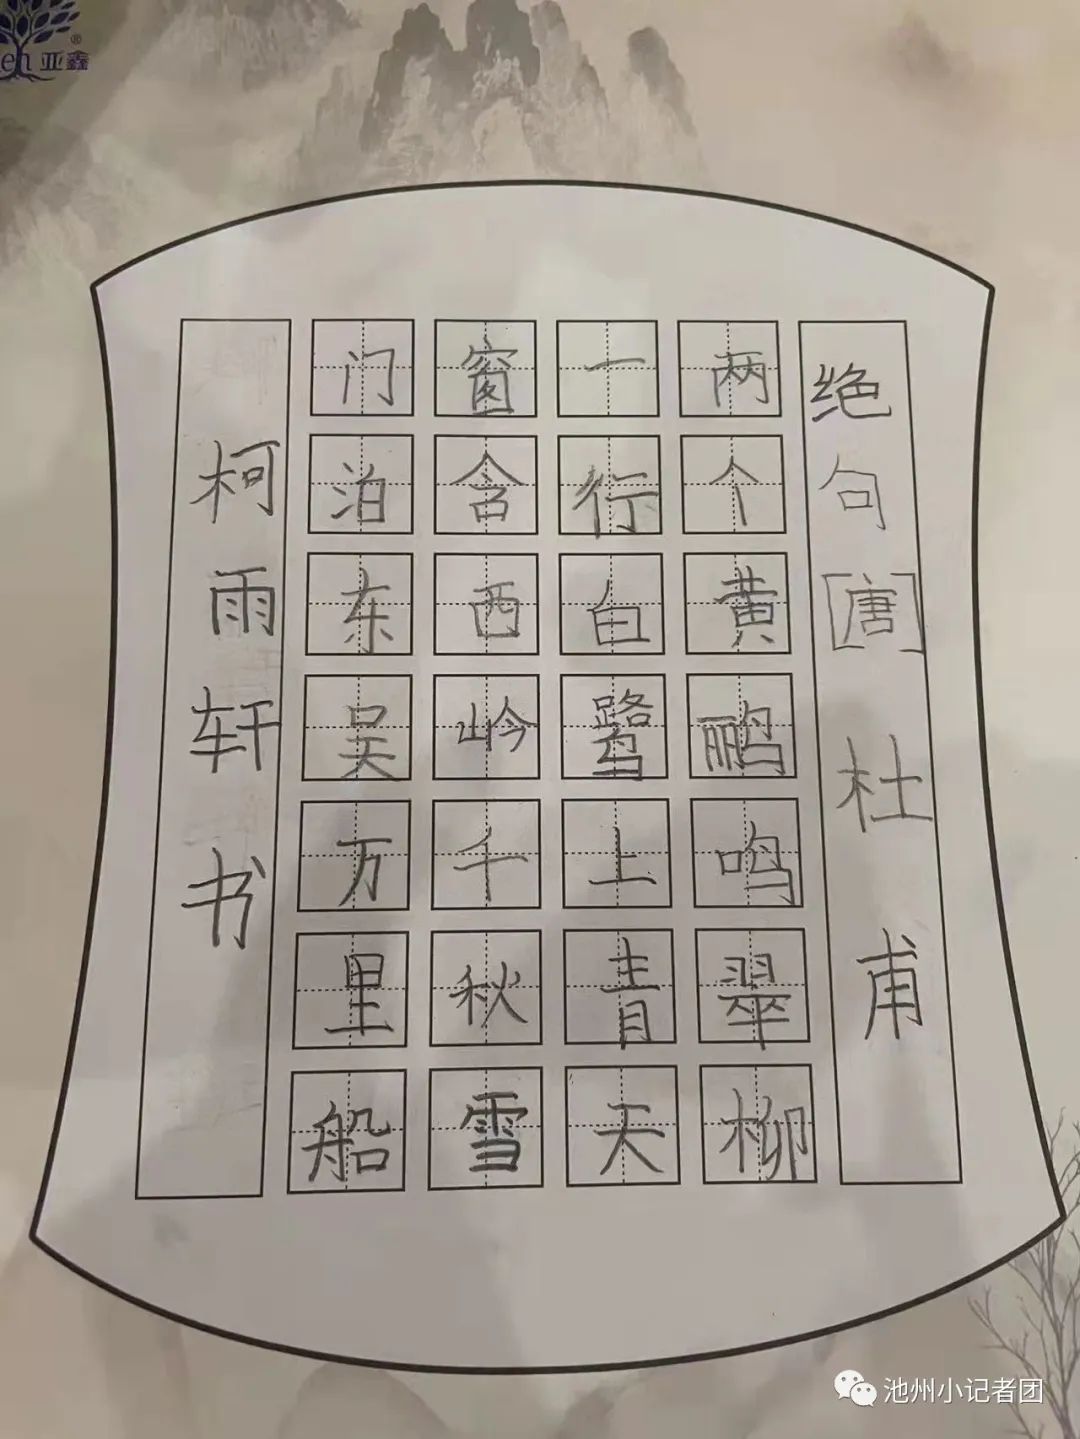 绝句[唐]杜甫
两个黄鹂鸣翠柳
一行白鹭上青天
窗含西岭千秋雪
门泊东吴万里船
柯雨轩书
亚鑫
池州小记者团